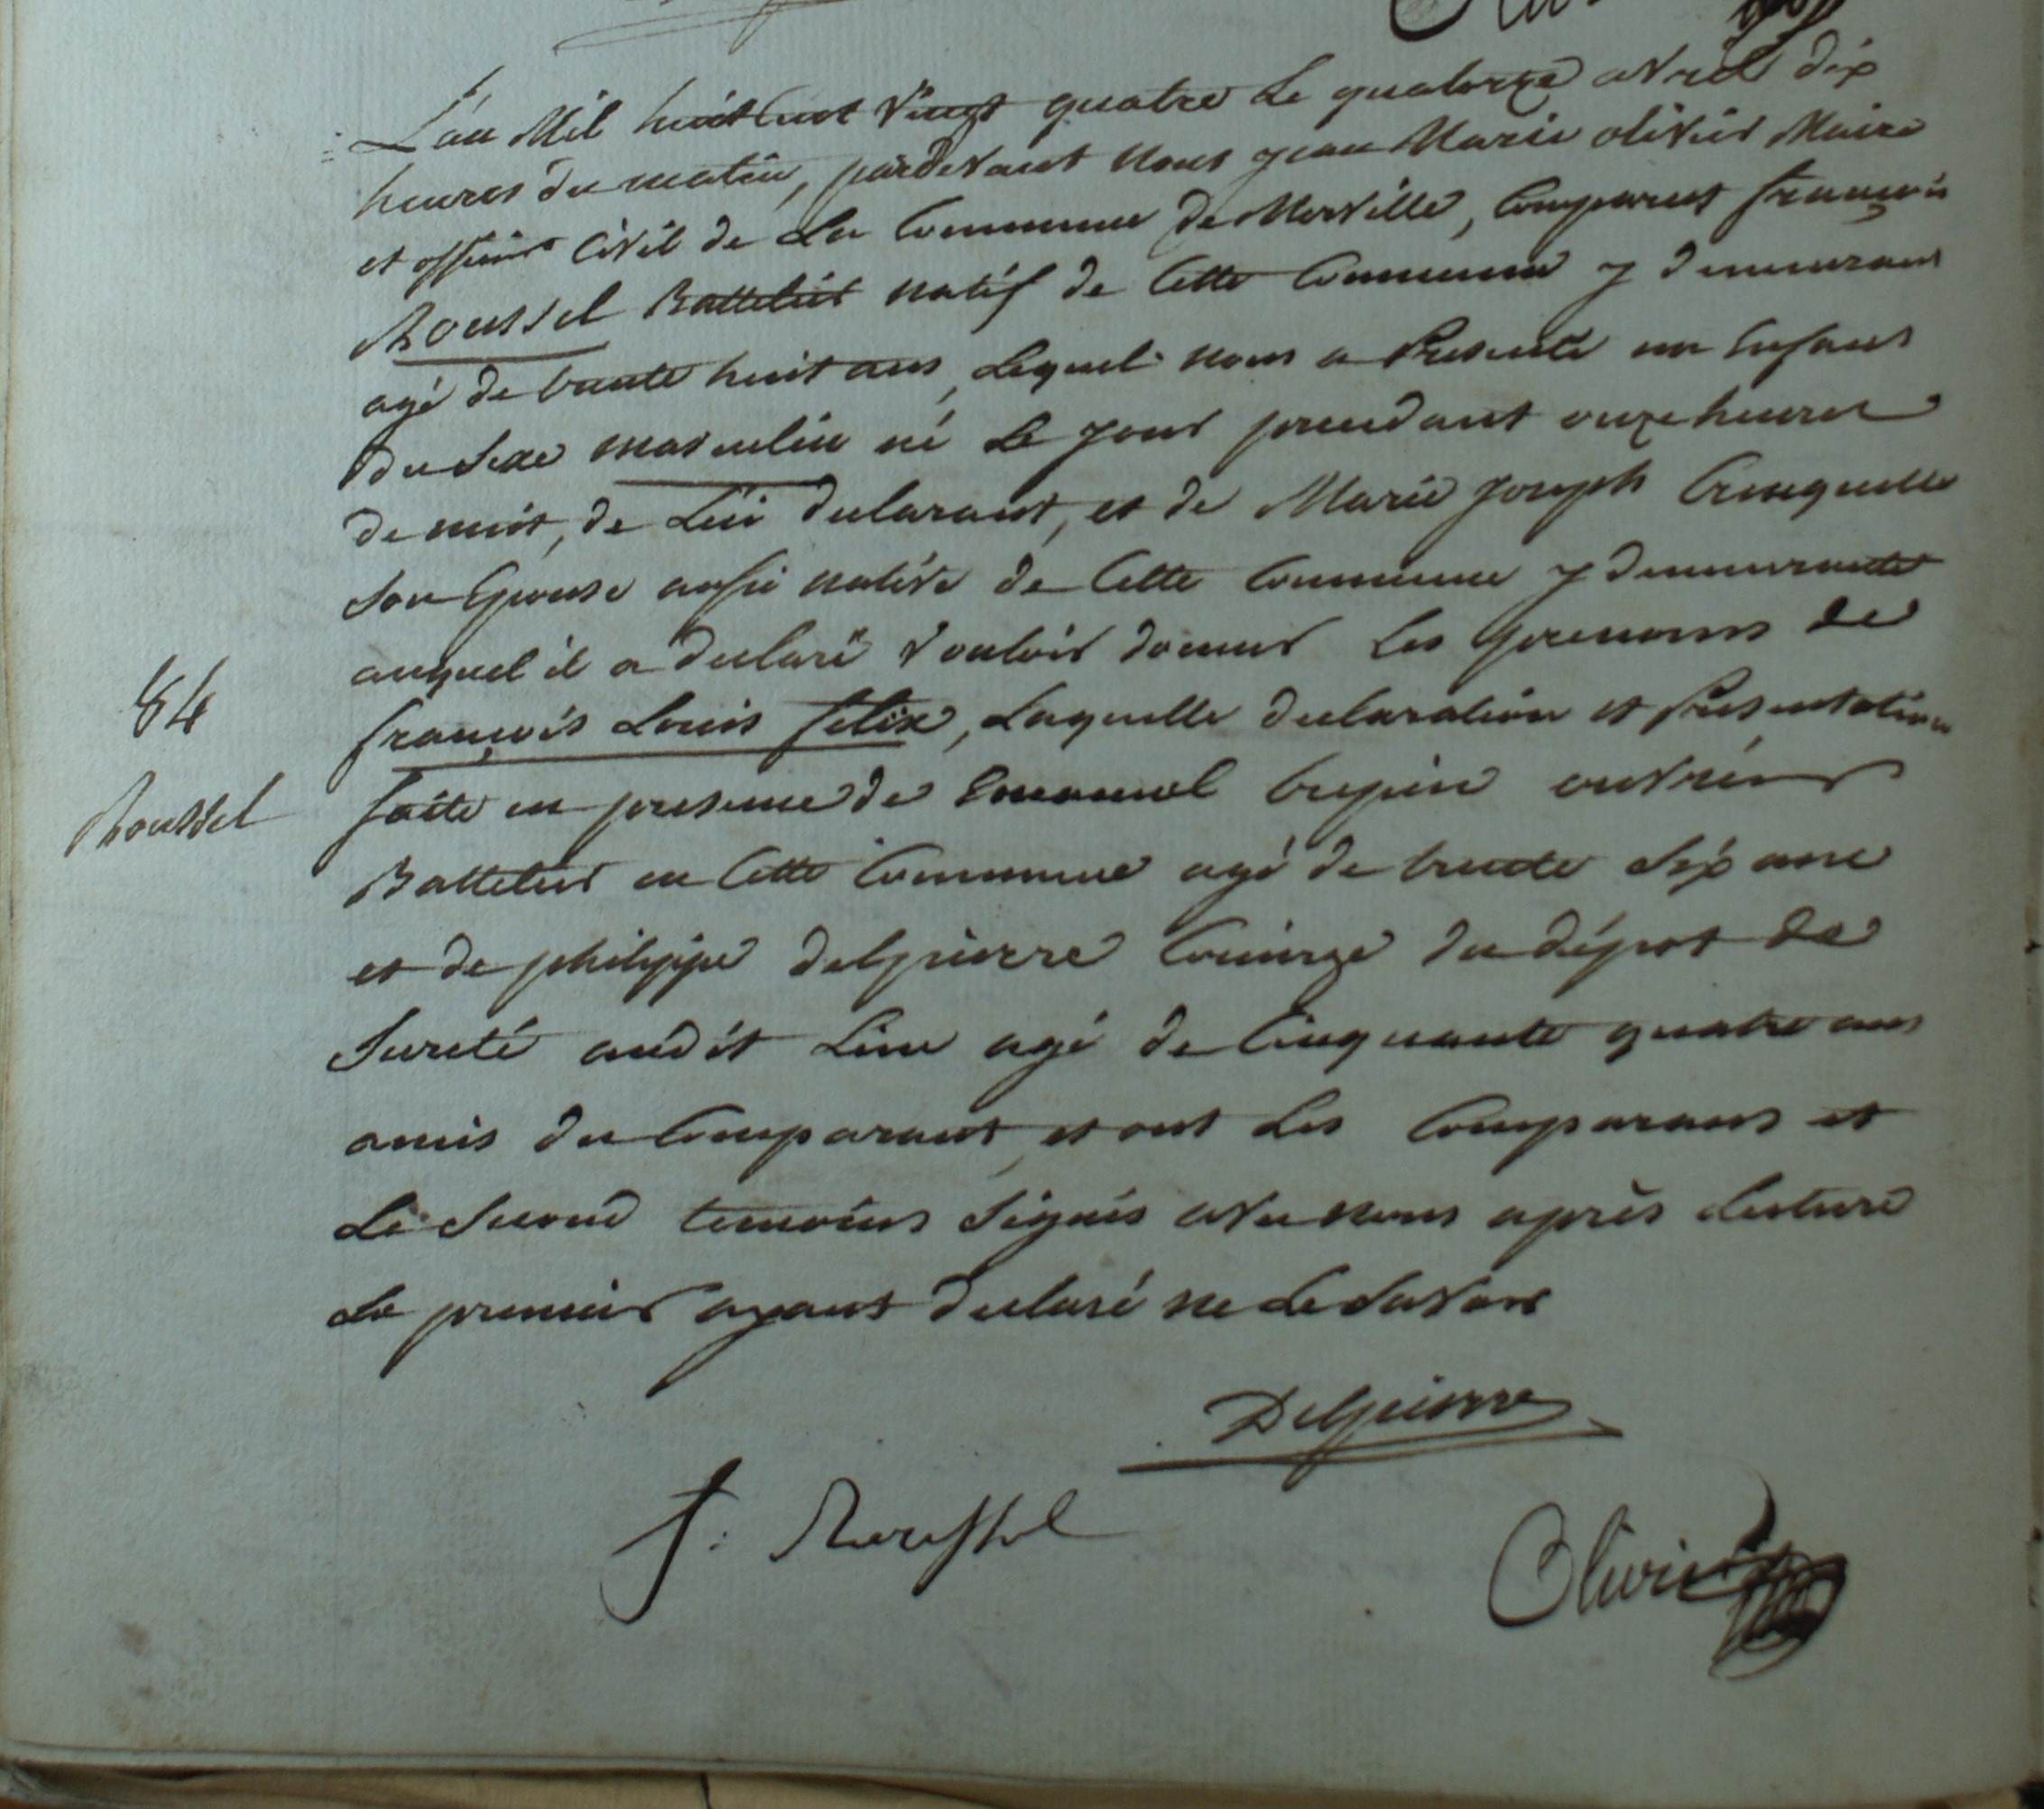 L'an Mil huit Cent Vingt quatre Le quatorze avril dix
heures du matin, pardevant Nous jean Marie olivier Maire
et officier Civil de La Commune de Merville, Comparut françois
Roussel Battelier natif de Cette Commune y demeurant
agé de trente huit ans, Lequel nous a Presenté un Enfant
du Sexe masculin né Le jour precedant onze heures
de nuit, de Lui declarant, et de Marie joseph Crinquelle
Son Epouse aussi native de Cette Commune y demeurante
auquel il a declaré vouloir donner Les prenoms de
françois Louis felix, Laquelle declaration et Presentation
faite en presence de Emanuel Crepin ouvrier
Battelier en Cette Commune agé de trente Six ans
et de philippe delpierre Concierge du dépot de
Sureté audit Lieu agé de Cinquante quatre ans
amis du Comparant, et ont Les Comparans et
Le Second temoins Signés avec nous après Lecture
Le premier ayant declaré ne Le Savoir
84
Roussel
Delpierre
f: Roussel
Olivier